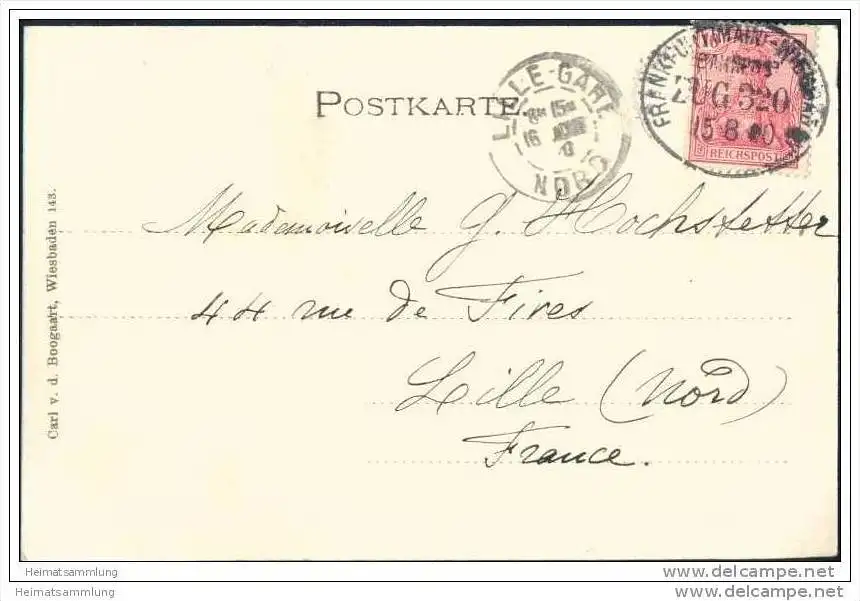 POSTKARTE.
LILLE-GARE
8 15
16
NORD
FRANKFURT (MAIN)-WIESBADEN
BAHNPOST
ZUG 320
15 8 00
REICHSPOST
Mademoiselle G. Hochstetter
44 rue de Fives
Lille (Nord)
France.
Carl v. d. Boogaart, Wiesbaden 143.
Heimatsammlung
Heimatsammlung
www.delcampe.net
www.delcampe.net